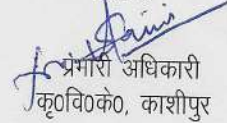 प्रभारी अधिकारी
कृ०वि०के०, काशीपुर